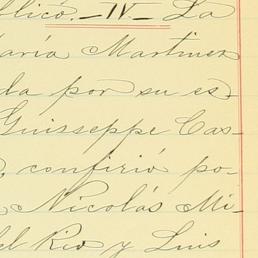 blico. - IV - La
María Martinez
da por su es-
Guisseppe Cas-
, confirió po-
, Nicolás Mi-
del Rio y Luis